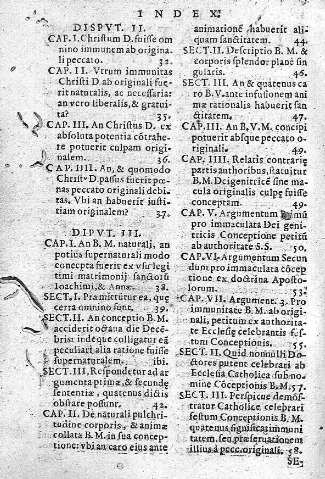 INDEX.
DISPVT. II.
CAP. I. Christum D. fuisse om
nino immunem ab origina
li peccato. 32.
CAP. II. Vtrum immunitas
Christi D. ab originali fue
rit naturalis, ac necessaria:
an vero liberalis, & gratui
ta? 35.
CAP. III. An Christus D. ex
absoluta potentia cōtrahe
re potuerit culpam origi-
nalem. 36.
CAP. IIII. An, & quomodo
Christ⁹ D. passus fuerit poe-
nas peccato originali debi
tas. Vbi an habuerit iusti
tiam originalem? 37.
DIPVT. III.
CAP. I. An B. M. naturali, an
potius supernaturali modo
concepta fuerit ex vsu legi
timi matrimonij sanctorū
Ioachimi, & Annæ. 38.
SECT. I. Præmittūtur ea, que
certa omnino sunt. 39.
SECT. II. An conceptio B. M.
acciderit octaua die Decē-
bris: indeque colligatur eā
peculiari alia ratione fuisse
supernaturalem. ibi.
SECT. III. Respondetur ad ar
gumenta primæ, & secundę
sententiæ, quatenus dictis
obstare possunt. 42.
CAP. II. De naturali pulchri
tudine corporis, & animæ
collata B. M. in sua concep-
tione: vbi an caro eius ante
animationē habuerit ali-
quam sanctitatem. 44.
SECT. II. Descriptio B. M. &
corporis splendor planè sin
gularis. 46.
SECT. III. An & quatenus ca
ro B. V. ante infusionem ani
mæ rationalis habuerit san
ctitatem. 47.
CAP. III. An B. V. M. concipi
potuerit absque peccato o-
riginali. 49.
CAP. IIII. Relatis contrariæ
partis authoribus, statuitur
B. M. Dei genitricē sine ma
cula originalis culpę fuisse
conceptam. 49.
CAP. V. Argumentum
pro immaculata Dei geni
tricis Conceptione petitū
ab authoritate S. S. 50.
CAP. VI. Argumentum Secun
dum pro immaculata cōcep
tione ex doctrina Aposto-
lorum. 53.
CAP. VII. Argument. 3. Pro
immunitate B. M. ab origi
nali, petitum ex authorita-
te Ecclesię celebrantis fe-
stum Conceptionis. 55.
SECT. II. Quid nonnulli Do-
ctores putent celebrari ab
Ecclesia Catholica sub no-
mine Cōceptionis B. M. 57.
SECT. III. Perspicue demōs-
tratur Catholice celebrari
festum Conceptionis B. M.
quatenus significat immuni
tatem, seu præseruationem
illius à pecc. originali. 58.
SE-